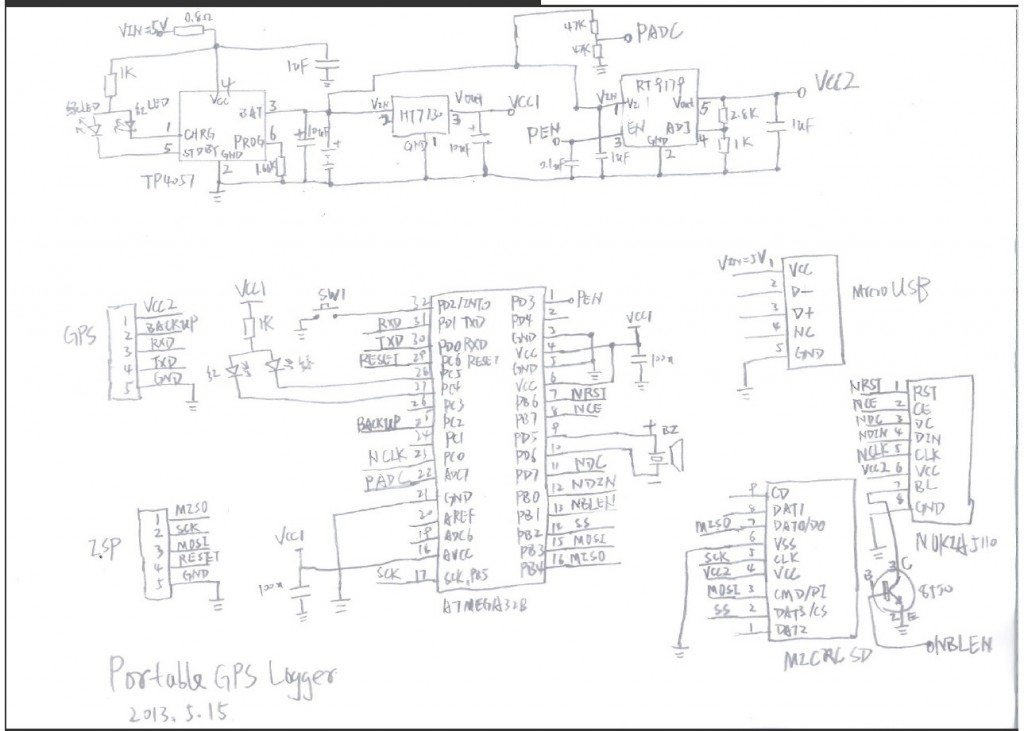 VIN=5V
0.8Ω
1K
绿LED
红LED
4
VCC
BAT 3
1 CHRG
PROG 6
5 STDBY
GND
2
TP4057
1.66K
1uF
10uF
VIN
2
HT7130
Vout
3
GND 1
VCC1
10uF
47K
47K
PADC
RT9179
VIN
1
Vout 5
PEN
3 EN
ADJ 4
GND
2
1uF
2.8K
1K
1uF
VCC2
GPS
1 VCC2
2 BACKUP
3 RXD
4 TXD
5 GND
VCC1
1K
红
绿
SW1
32 PD2/INT0
RXD 31 PD1 TXD
TXD 30 PD0 RXD
RESET 29 PC6 RESET
28 PC5
27 PC4
26 PC3
BACKUP 25 PC2
24 PC1
NCLK 23 PC0
PADC 22 ADC7
21 GND
20 AREF
19 ADC6
18 AVCC
SCK 17 SCK, PB5
PD3 1 PEN
PD4 2
GND 3
VCC 4
GND 5
VCC 6
PB6 7 NRST
PB7 8 NCE
PD5 9
PD6 10
PD7 11 NDC
PB0 12 NDIN
PB1 13 NBLEN
PB2 14 SS
PB3 15 MOSI
PB4 16 MISO
ATMEGA328
VCC1
100n
BZ
VCC1
100n
ISP
1 MISO
2 SCK
3 MOSI
4 RESET
5 GND
VIN=5V 1 VCC
2 D-
3 D+
4 NC
5 GND
MicroUSB
NRST 1 RST
NCE 2 CE
NDC 3 DC
NDIN 4 DIN
NCLK 5 CLK
VCC2 6 VCC
7 BL
8 GND
NOKIA5110
9 CD
8 DAT1
MISO 7 DAT0/DO
6 VSS
SCK 5 CLK
VCC2 4 VCC
MOSI 3 CMD/DI
SS 2 DAT3/CS
1 DAT2
MICRO SD
3 C
B
8550
2 E
NBLEN
Portable GPS Logger
2013.5.15